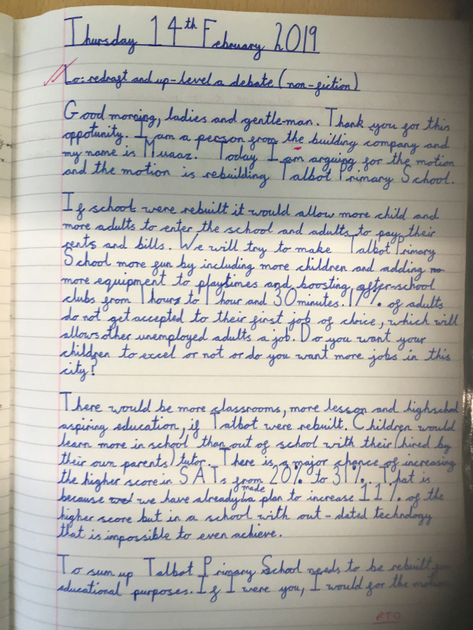 Thursday 14th February 2019
Lo: redraft and up-level a debate (non-fiction)
Good morning, ladies and gentleman. Thank you for this
oppotunity. I am a person from the building company and
my name is Muaaz. Today I am arguing for the motion
and the motion is rebuilding Talbot Primary School.
If school were rebuilt it would allow more child and
more adults to enter the school and adults to pay their
rents and bills. We will try to make Talbot Primary
School more fun by including more children and adding
more equipment to playtimes and boosting after-school
clubs from 1 hours to 1 hour and 30 minutes. 17% of adults
do not get accepted to their first job of choice, which will
allows other unemployed adults a job. Do you want your
children to excel or not or do you want more jobs in this
city?
There would be more classrooms, more lesson and highschool
aspiring education, if Talbot were rebuilt. Children would
learn more in school than out of school with their (hired by
their own parents) tutor. There is a major chance of increasing
the higher score in SATs from 20% to 31%. That is
because we have already made a plan to increase 11% of the
higher score but in a school with out-dated technology
that is impossible to even achieve.
To sum up Talbot Primary School needs to be rebuilt for
educational purposes. If I were you, I would for the motion
PTO